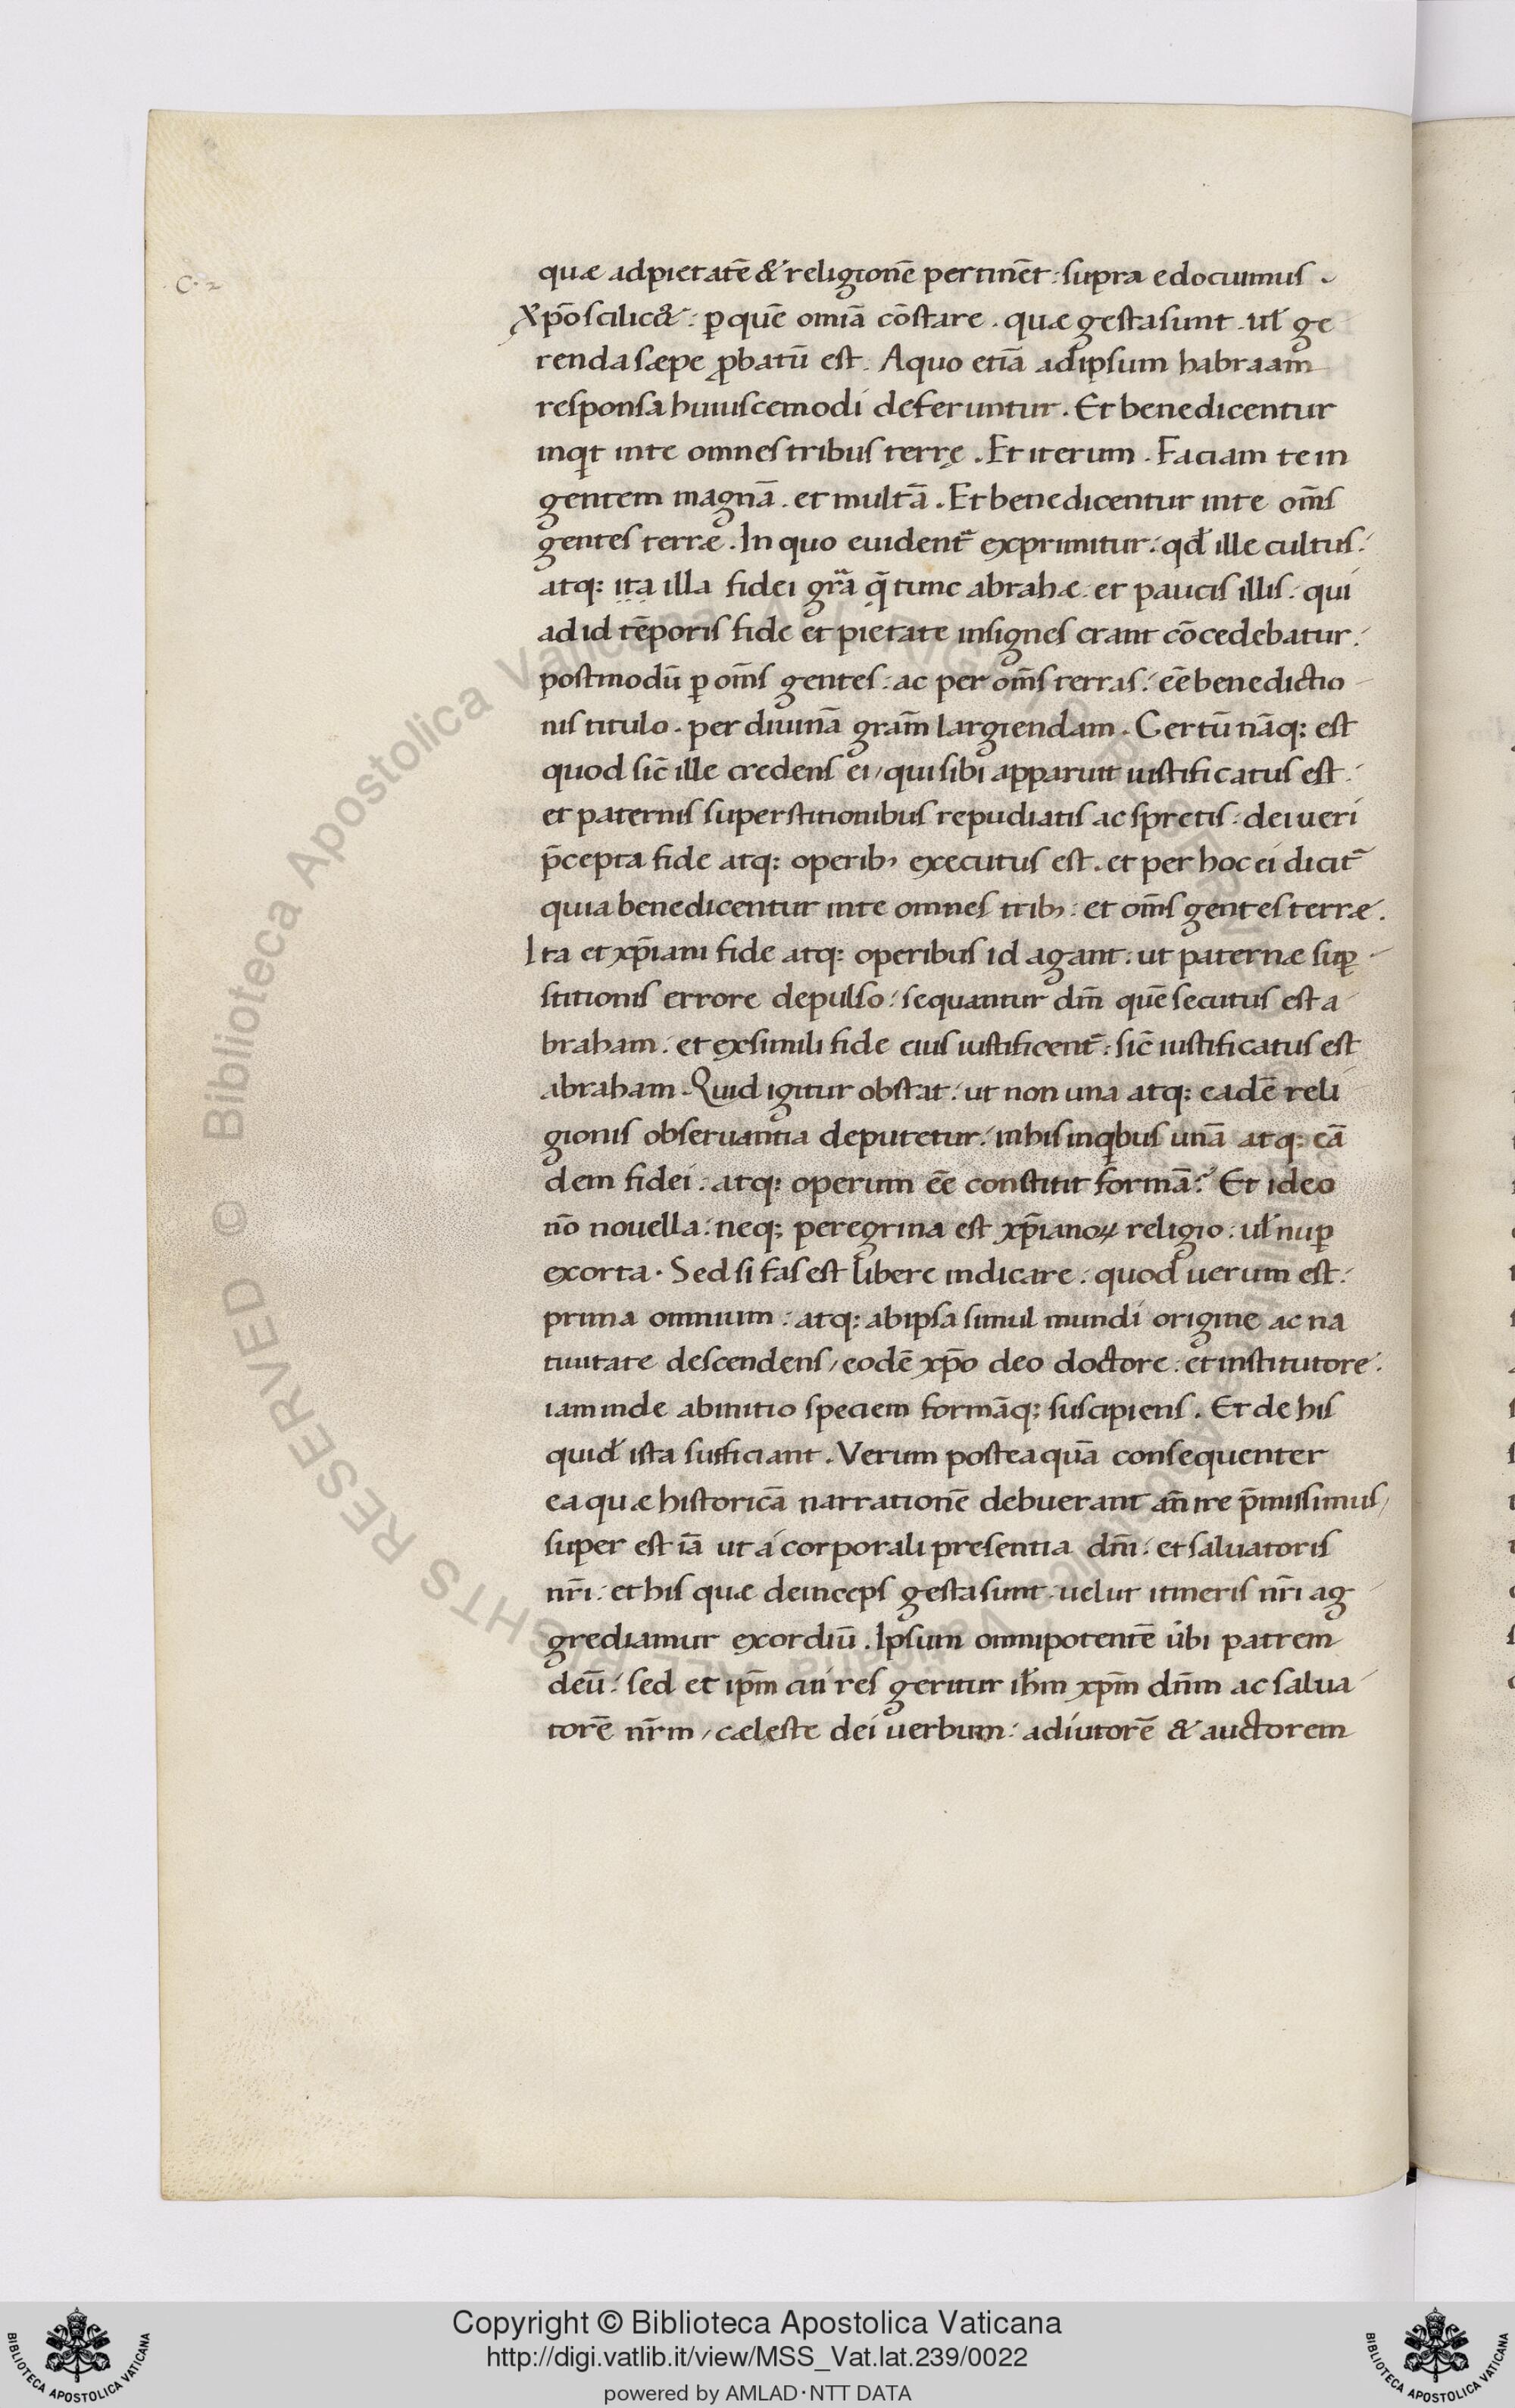 C. 2
quæ ad pietatē & religionē pertinēt: supra edocuimus.
Xp̄o scilic&: ꝑ quē omīa cōstare. quæ gesta sunt. ul̄ ge
renda sæpe ꝓbatū est. A quo etiā ad ipsum habraam
responsa huiuscemodi deferuntur. Et benedicentur
inqt inte omnes tribus terrę. Et iterum. Faciam te in
gentem magnā. et multā. Et benedicentur inte om̄s
gentes terræ. In quo euident᷑ exprimitur: qđ ille cultus:
atq: ita illa fidei gr̄a q̄ tunc abrahæ: et paucis illis: qui
ad id tēporis fide et pietate insignes erant cōcedebatur:
postmodū ꝑ om̄s gentes: ac per om̄s terras: eē benedictio
nis titulo. per diuinā gram̄ largiendam. Certū nāq: est
quod sic̄ ille credens ei, qui sibi apparuit iustificatus est:
et paternis superstitionibus repudiatis ac spretis: dei ueri
p̄cepta fide atq: operib; executus est. et per hoc ei dicit᷑
quia benedicentur inte omnes trib;: et om̄s gentes terræ.
Ita et xp̄iani fide atq: operibus id agant: ut paternæ suꝑ
stitionis errore depulso: sequantur dm̄ quē secutus est a
braham: et ex simili fide eius iustificent᷑: sic̄ iustificatus est
abraham. Quid igitur obstat: ut non una atq: eadē reli
gionis obseruantia deputetur: in his inqbus unā atq: eā
dem fidei: atq: operum eē constitit formā? Et ideo
nō nouella: neq; peregrina est xp̄ianoꝝ religio: ul̄ nuꝑ
exorta. Sed si fas est libere indicare: quod uerum est:
prima omnium: atq: ab ipsa simul mundi origine ac na
tiuitate descendens, eodē xp̄o deo doctore: et institutore:
iam inde ab initio speciem formāq: suscipiens. Et de his
quid̄ ista sufficiant. Verum postea quā consequenter
ea quæ historicā narrationē debuerant an̄ ire p̄missimus,
super est iā ut á corporali presentia dm̄: et saluatoris
nr̄i: et his quæ deinceps gesta sunt. uelut itineris nr̄i ag
grediamur exordiū. Ipsum omnipotentē úbi patrem
deū: sed et ip̄m cui res geritur ih̄m xp̄m dn̄m ac salua
torē nr̄m, cæleste dei uerbum: adiutorē & auctorem
© Biblioteca Apostolica Vaticana ALL RIGHTS RESERVED
BIBLIOTECA APOSTOLICA VATICANA
Copyright © Biblioteca Apostolica Vaticana
http://digi.vatlib.it/view/MSS_Vat.lat.239/0022
powered by AMLAD·NTT DATA
BIBLIOTECA APOSTOLICA VATICANA